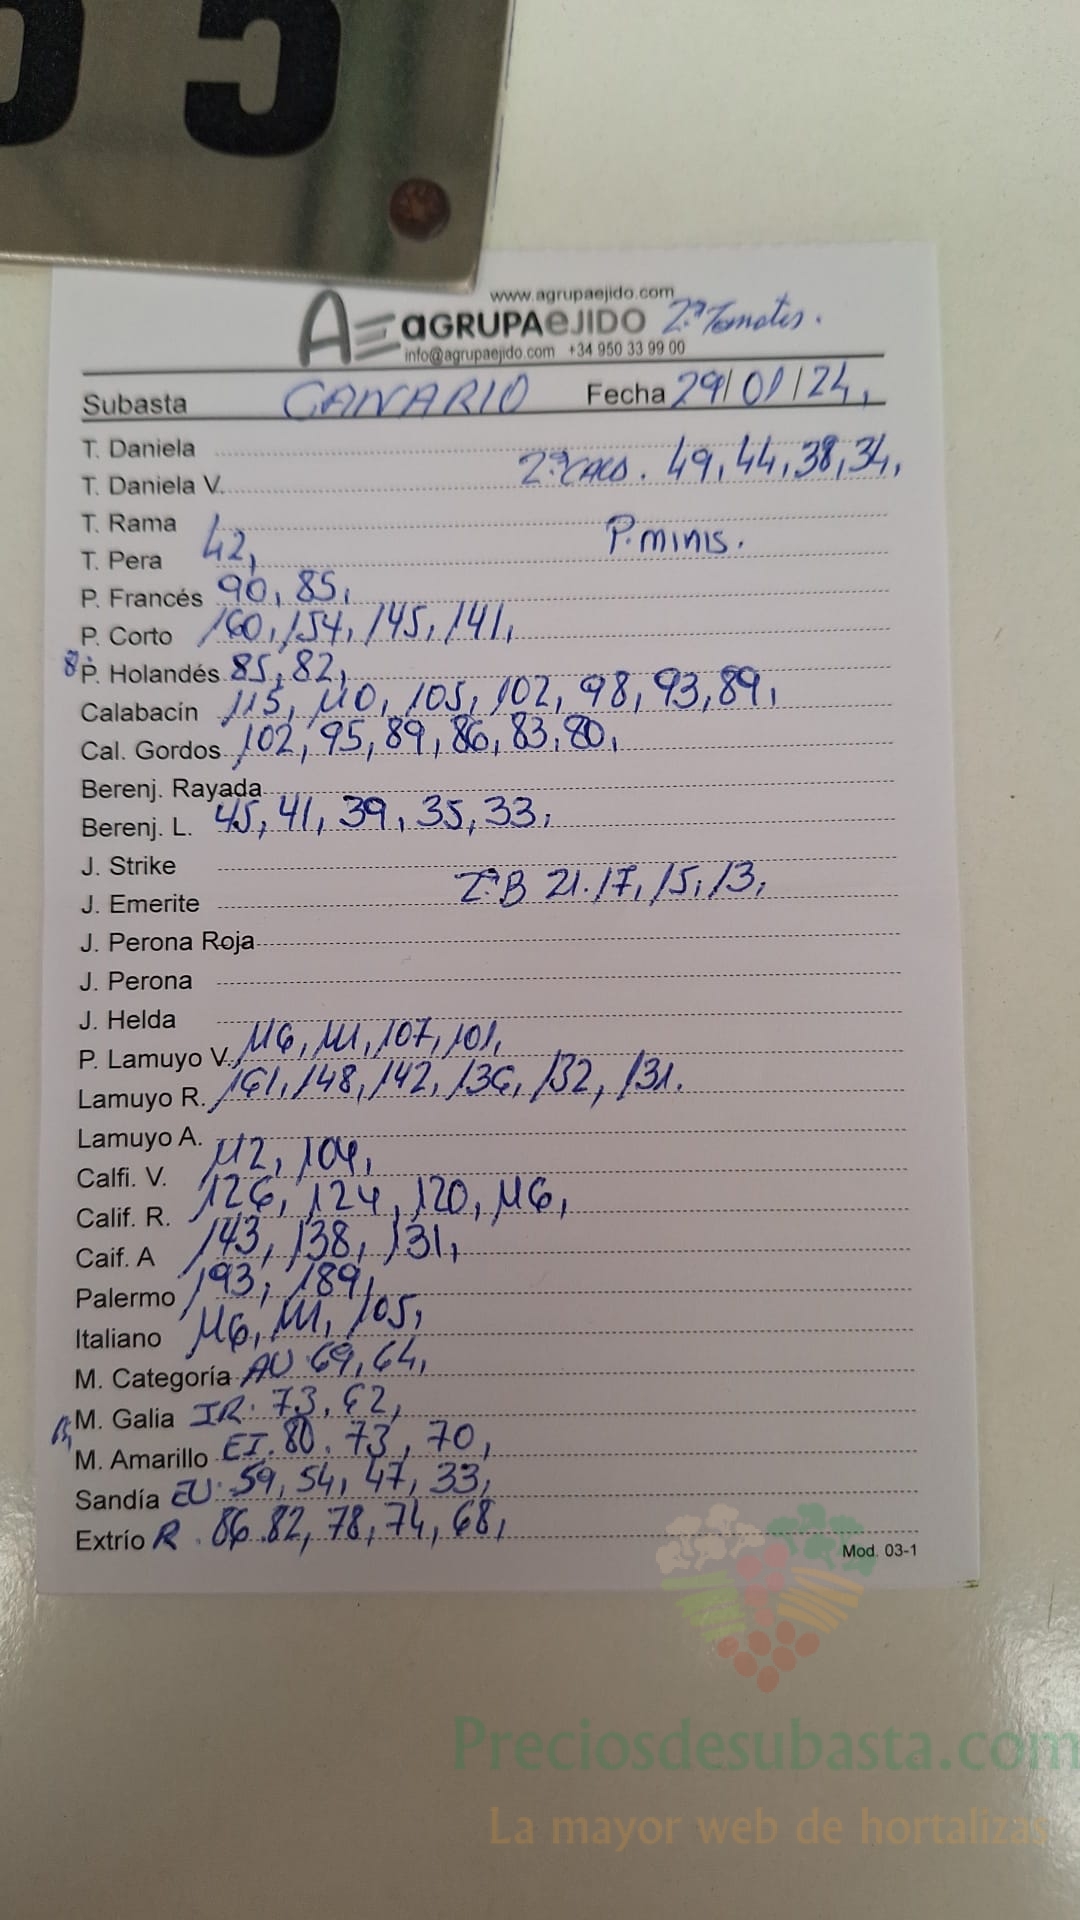 55
www.agrupaejido.com
AGRUPAEJIDO 2ª Tomates.
info@agrupaejido.com +34 950 33 99 00
Subasta CANARIO Fecha 29/01/24,
T. Daniela
T. Daniela V. 2ª CALD. 49, 44, 38, 34,
T. Rama
T. Pera 42, P. minis.
P. Francés 90, 85,
P. Corto 160, 154, 145, 141,
P. Holandés 85, 82,
Calabacín 115, 110, 105, 102, 98, 93, 89,
Cal. Gordos 102, 95, 89, 86, 83, 80,
Berenj. Rayada
Berenj. L. 45, 41, 39, 35, 33,
J. Strike
J. Emerite 2ª B 21. 17, 15, 13,
J. Perona Roja
J. Perona
J. Helda
P. Lamuyo V. 116, 111, 107, 101,
Lamuyo R. 161, 148, 142, 136, 132, 131.
Lamuyo A.
Calfi. V. 112, 104,
Calif. R. 126, 124, 120, 116,
Caif. A 143, 138, 131,
Palermo 193, 189,
Italiano 116, 111, 105,
M. Categoría AU 69, 64,
M. Galia IR. 73, 62,
M. Amarillo EI. 80. 73, 70,
Sandía EU. 59, 54, 47, 33,
Extrío R. 86. 82, 78, 74, 68,
Mod. 03-1
Preciosdesubasta.com
La mayor web de hortalizas